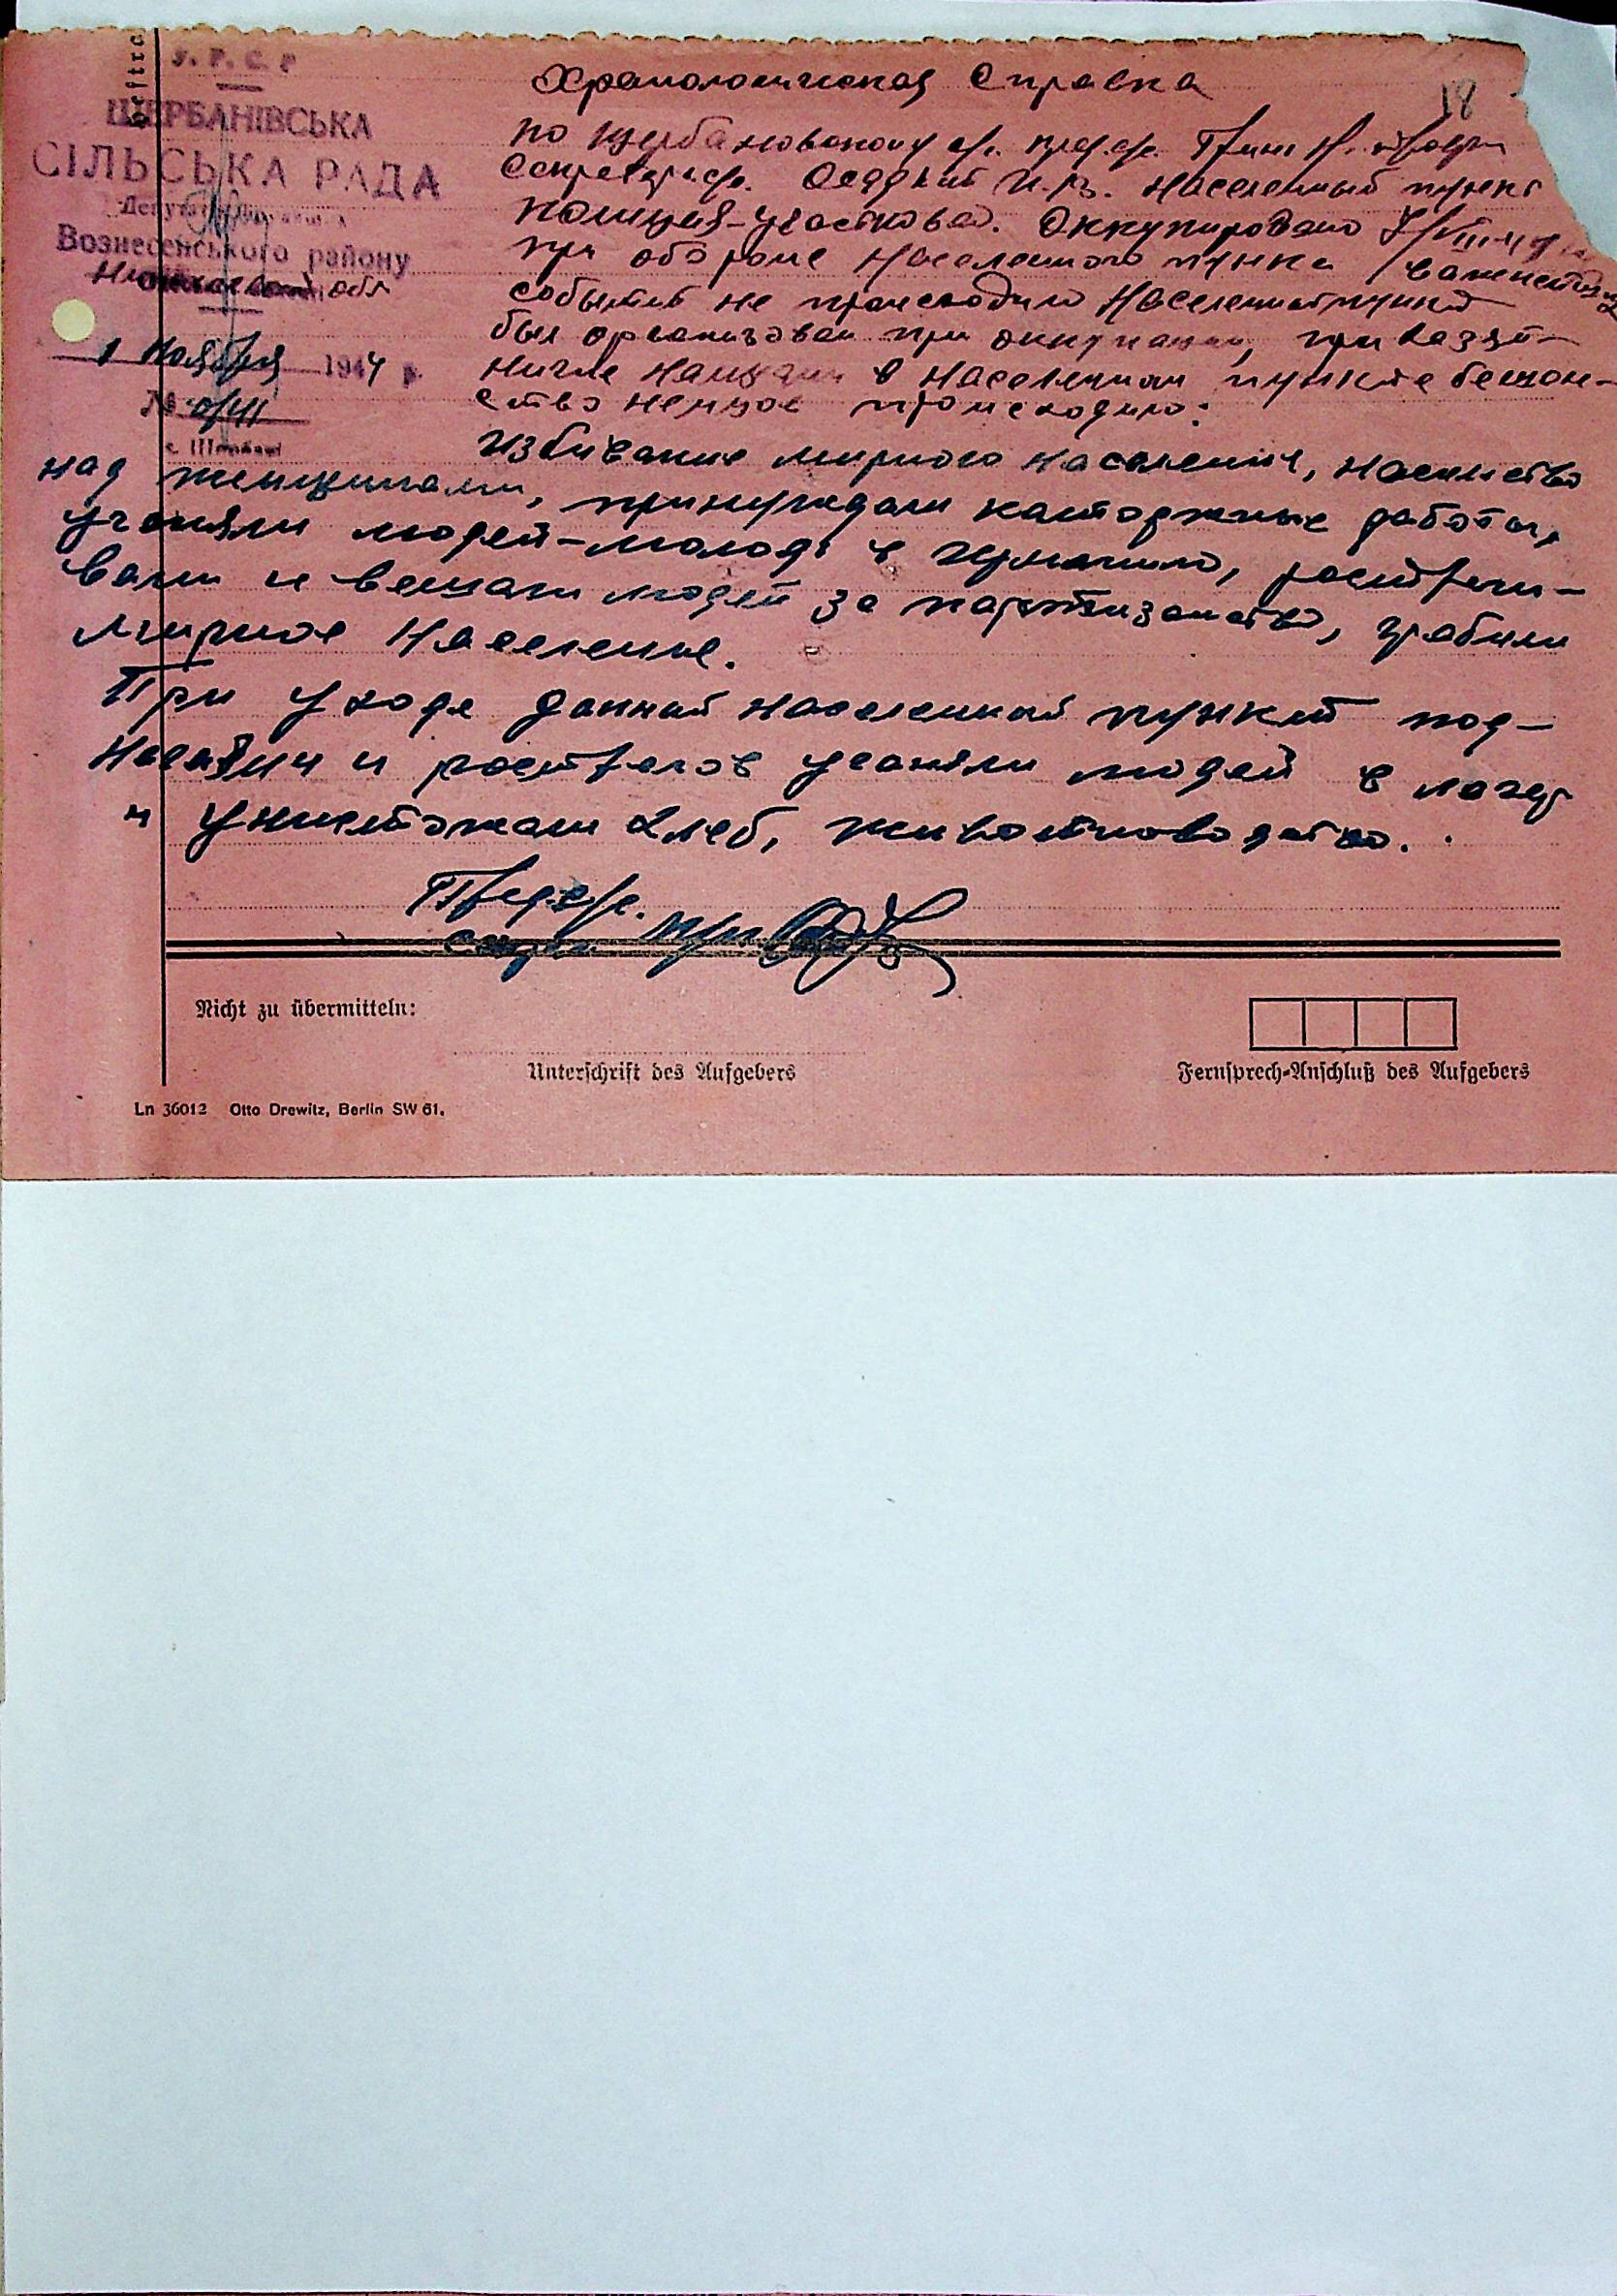 У. Р. С. Р
ЩЕРБАНІВСЬКА
СІЛЬСЬКА РАДА
Вознесенського району
обл
1 Ноября 1944 р.
№
с. Щербані
18
Хронологическая Справка
по Щербановскому с/с. пред. с/с. Грин Н.
Секретарь с/с. Осадкий И. Населенный пункт
Оккупировано
при обороне Населенного пункта
событий не происходило Населенный пункт
был организован при оккупации, при хозяй-
в населенном пункте бешон-
ство немцов происходило:
Избивание мирного населения, насилство
над женщинами, принуждали каторжные работы,
угоняли людей-молодь в германию, расстрели-
вали и вешали людей за партизанство, грабили
мирное Население.
При уходе данный населенный пункт под-
и расстрелов угоняли людей в лагер
и уничтожали хлеб, животноводство.
Пред. с/с.
секр
Nicht zu übermitteln:
Unterschrift des Aufgebers
Fernsprech-Anschluß des Aufgebers
Ln 36012 Otto Drewitz, Berlin SW 61.